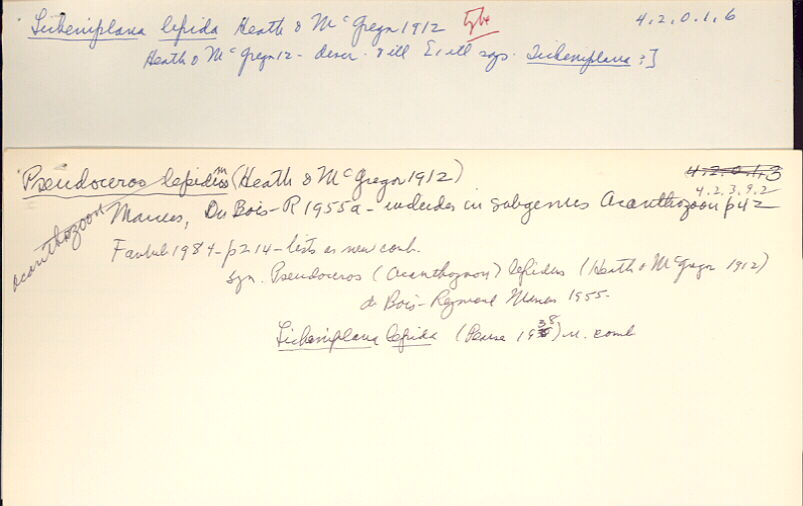 Licheniplana lepida Heath & McGregor 1912 Type 4.2.0.1.6
Heath & McGregor 12 - descr. & ill
Pseudoceros lepidus (Heath & McGregor 1912) 4.2.0.1.3
4.2.3.9.2
Acanthozoon
Marcus, Du Bois-R 1955a - includes in subgenus Acanthozoon p42
Faubel 1984 - p214 - lists as new comb.
syn. Pseudoceros (Acanthozoon) lepidus (Heath & McGregor 1912)
du Bois-Reymond Marcus 1955.
Licheniplana lepida (Pearse 1938) n. comb